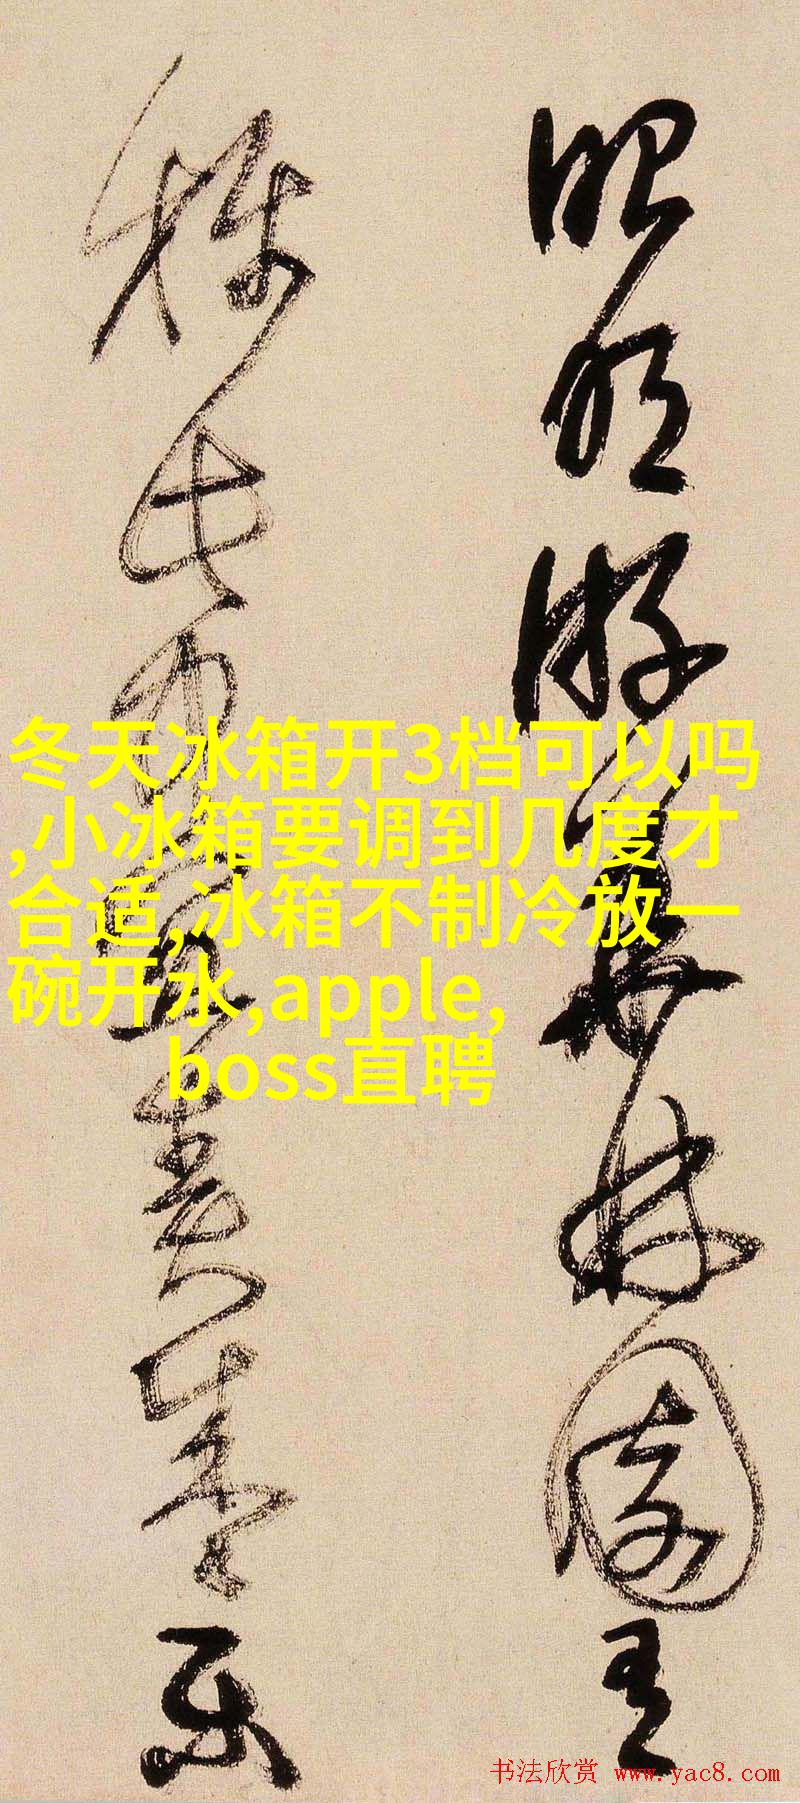 昭明游華林園
此中宜奏樂
冬天冰箱开3档可以吗
,小冰箱要调到几度才
合适,冰箱不制冷放一
碗开水,apple,
boss直聘
书法欣赏 www.yac8.com